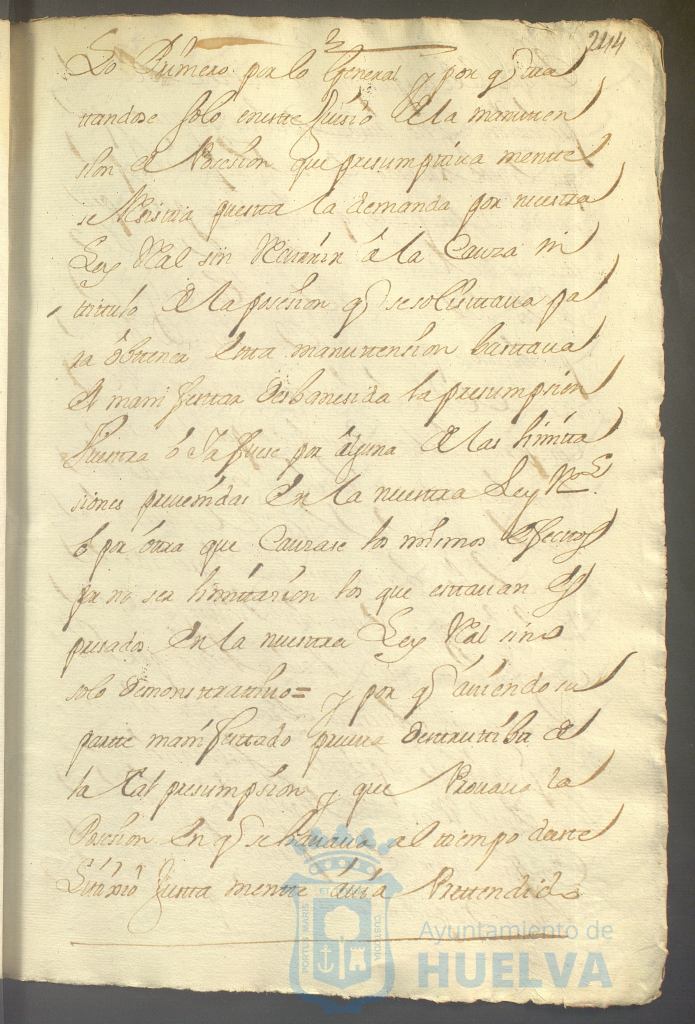 244
Lo Primero por lo General y por q̃ tra
tandose solo en este Juisio de la manuten
sion de Posesion que presumptiva mente
se Resistia puesta la demanda por nuestra
Ley Real sin Recurrir â la Cauza ni
titulo de la posesion q̃ se solisitava pa
ra obtener esta manutension bastava
el manifestar desbanesida la presumpsion
Nuestra ô Ya fuese por alguna de las limita
siones prevenidas en la nuestra Ley Rl.
ô por otra que Cauzase los mismos efectos
pr. no ser limitasion los que estavan ex
presados en la nuestra Ley Real sino
solo demonstrativos = y por q̃ aviendo su
parte manifestado prueva destrutiba de
la tal presumpsion y que Provava la
Posesion en q̃ se hallava al tiempo deste
Litixio Justa mente avia Pretendido
Ayuntamiento de
HUELVA
PORTUS MARIS ET TERRAE CUSTODIA